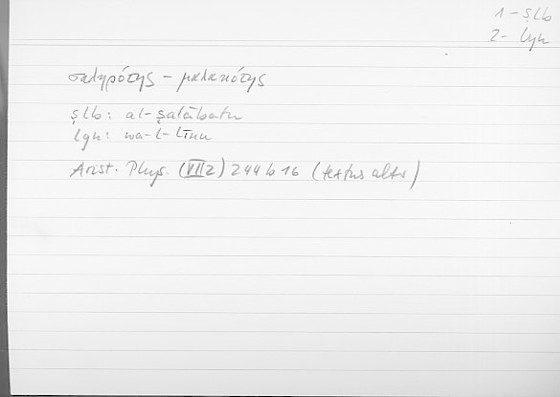 1 - ṣlb
2 - lyn
σκληρότης – μαλακότης
ṣlb: al-ṣalābatu
lyn: wa-l-līnu
Arist. Phys. (VII 2) 244 b 16 (textus alter)